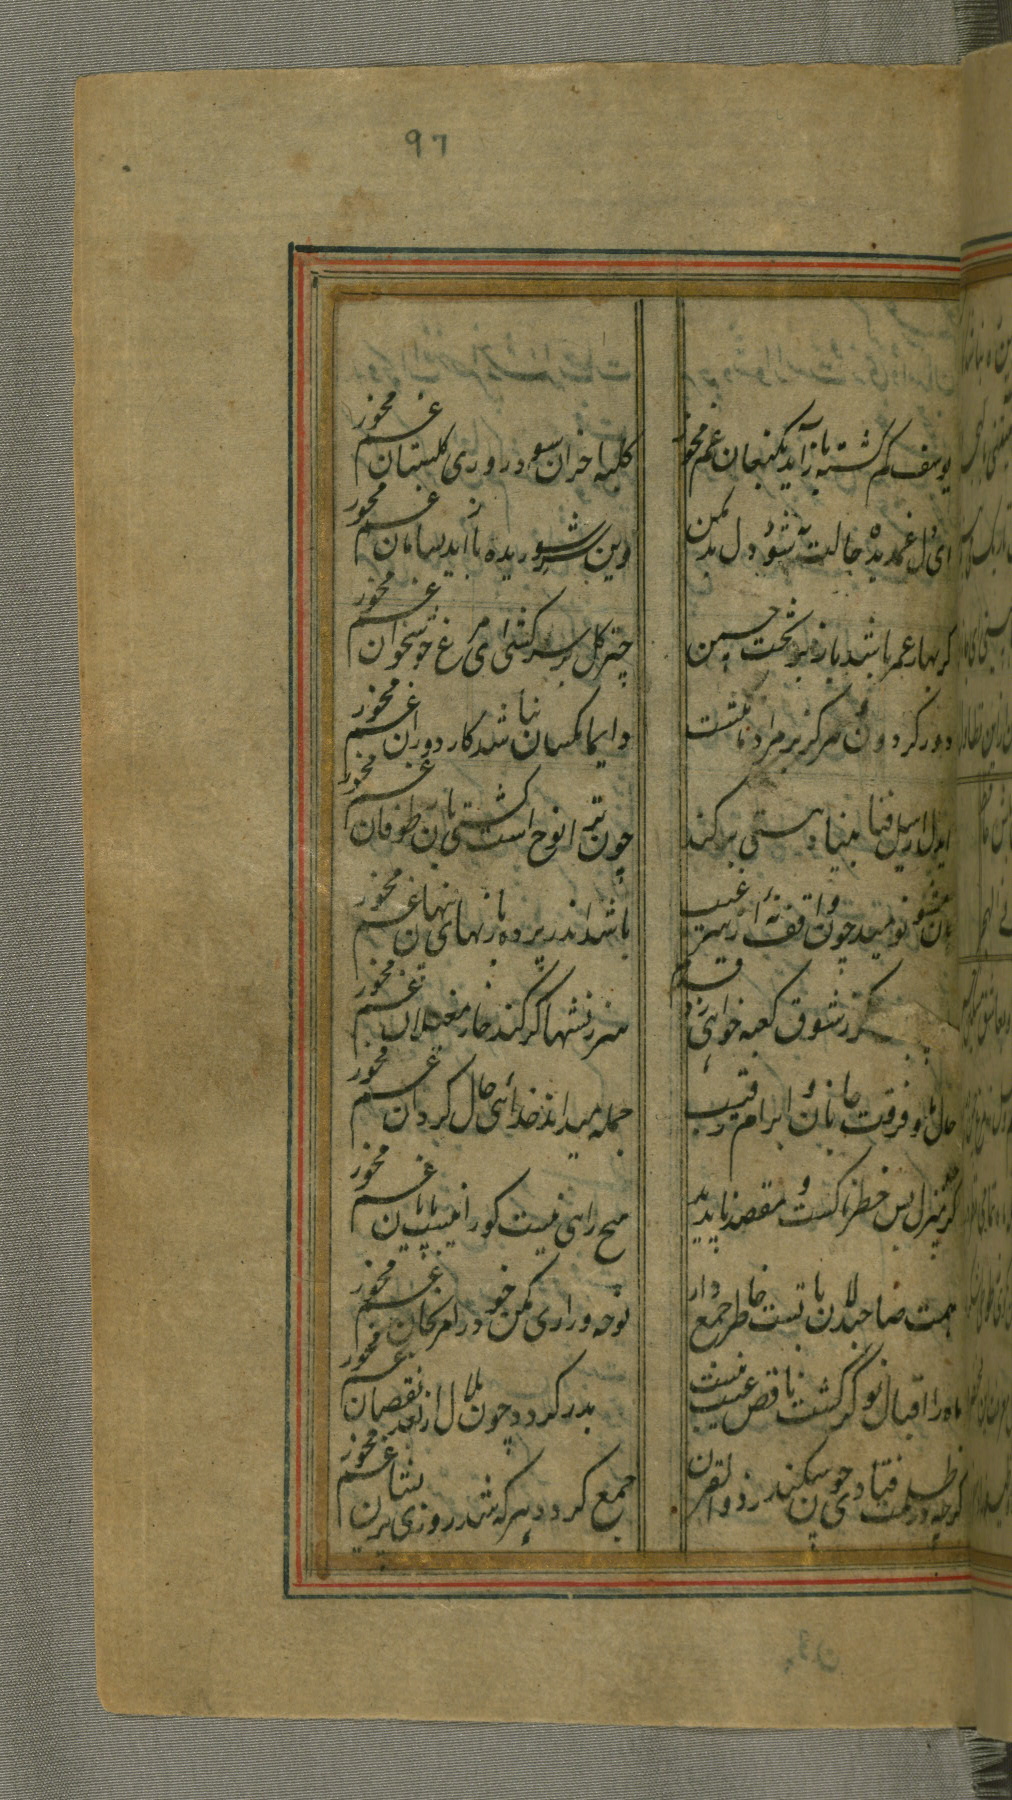 ۹۶
یوسف کم کشته باز آید بکنعان غم مخور
کلبه احزان سود روزی کلستان غم مخور
ای دل غمدیده حالت به شود دل بد مکن
وین سر شوریده باز آید بسامان غم مخور
کر بهار عمر باشد باز بر تخت چمن
چتر کل بر سر کشی ای مرغ خوشخوان غم مخور
دور کردون کر مراد
دایما یکسان نباشد کار دوران غم مخور
ایدل ار سیل فنا بنیاد هستی بر کند
چون ترا نوح است کشتی بان طوفان غم مخور
هان مشو نومید چون واقف نه از سر غیب
باشد اندر پرده بازیهای نهان غم مخور
کر ز شوق کعبه خواهی زد قدم
سرزنشها کر کند خار مغیلان غم مخور
حال ما و فرقت جانان و ابرام رقیب
جمله میداند خدای حال کردان غم مخور
کرچه منزل بس خطرناکست و مقصد ناپدید
هیچ راهی نیست کورا نیست پایان غم مخور
همت صاحبدلان با تست خاطر جمع دار
نوحه و زاری مکن خود را مرنجان غم مخور
ماه را اقبال تو کر کشت ناقص عیب نیست
بدر کردد چون هلال از بعد نقصان غم مخور
کرچه در ظلمت فتادی چون سکندر ذوالقرن
جمع کردد هر که شد روزی پریشان غم مخور